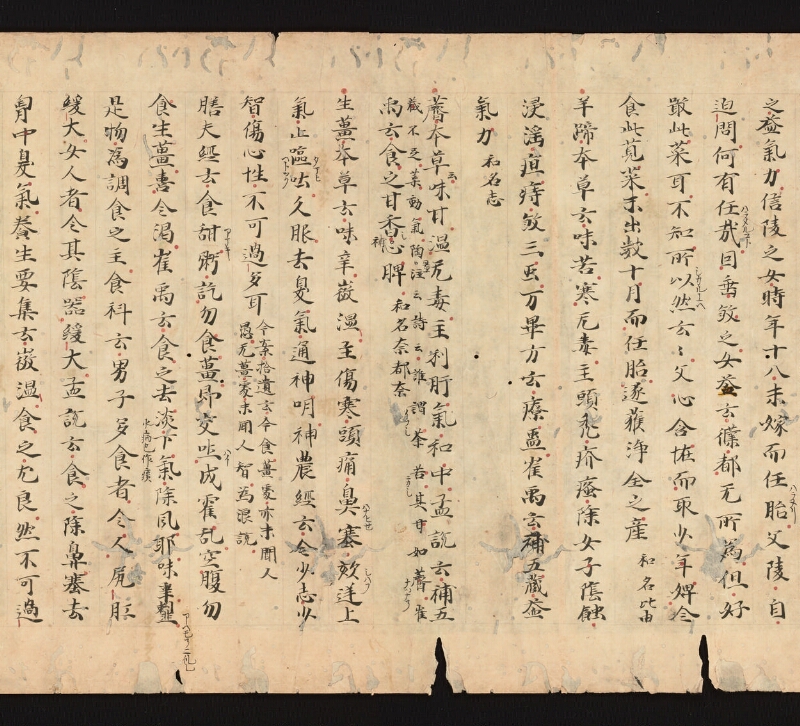 之益氣力信陵之女時年十八未嫁而任胎父陵自
迫問何有任哉曰垂欲之女益云僕都无所為但好
敢此菜耳不知所以然云々父心含恠而取少年婢令
食此莧菜才出数十月而任胎遂獲浄全之産 和名比由
羊蹄本草云味苦寒无毒主頭禿疥瘙除女子陰蝕
浸淫疽痔 三虫万畢方云療蠱崔禹云補五蔵益
氣力 和名志
薺本草味甘温无毒主利肝氣和中孟詵云補五
蔵不足葉動氣陶注云詩云誰謂荼苦其甘如薺崔
禹云食之甘香補心脾 和名奈都奈
生薑本草云味辛微温主傷寒頭痛鼻塞欬逆上
氣止嘔吐久服去臭氣通神明神農經云令少志少
智傷心性不可過多耳 今案拾遺云今食薑處亦未聞人
愚无薑處未聞人智為浪説
膳夫經云食甜粥訖勿食薑即交吐成霍乱空腹勿
食生薑喜令渇崔禹云食之去淡下氣除風耶味
是物為調食之主食科云男子多食者令人尻
緩大女人者令其陰器緩大孟詵云食之除鼻塞去
胷中臭氣養生要集云微温食之尤良然不可過